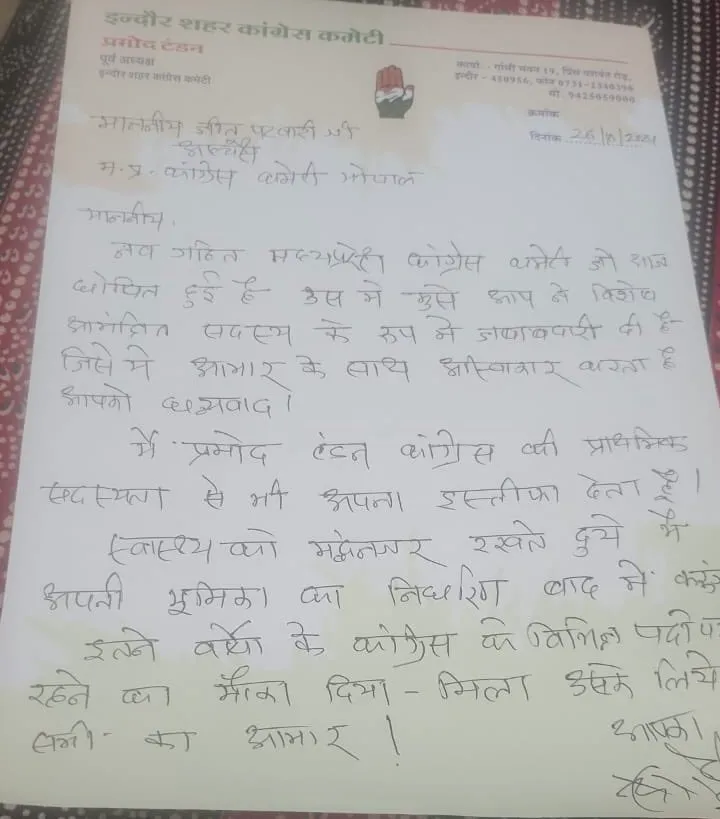 इन्दौर शहर कांग्रेस कमेटी
प्रमोद टंडन
पूर्व अध्यक्ष
इन्दौर शहर कांग्रेस कमेटी
कार्या. - गांधी भवन 19, प्रिंस यशवंत रोड़,
इन्दौर - 450956, फोन 0731-2540396
मो. 9425059000
क्रमांक
दिनांक 26/
माननीय जीतू पटवारी जी
अध्यक्ष
म.प्र. कांग्रेस कमेटी भोपाल
माननीय,
नव गठित मध्यप्रदेश कांग्रेस कमेटी जो आज
घोषित हुई है उस में मुझे आप ने विशेष
आमंत्रित सदस्य के रूप में जवाबदारी दी है
जिसे मे आभार के साथ अस्विकार करता हूँ
आपको धन्यवाद।
मै प्रमोद टंडन कांग्रेस की प्राथमिक
सदस्यता से भी अपना इस्तीफा देता हूँ।
स्वास्थ्य को मद्देनजर रखते हुये मै
अपनी भूमिका का निर्धारण बाद में
इतने वर्षो के कांग्रेस के विभिन्न पदो
रहने का मौका दिया - मिला उसके लिये
सभी का आभार!
आपका